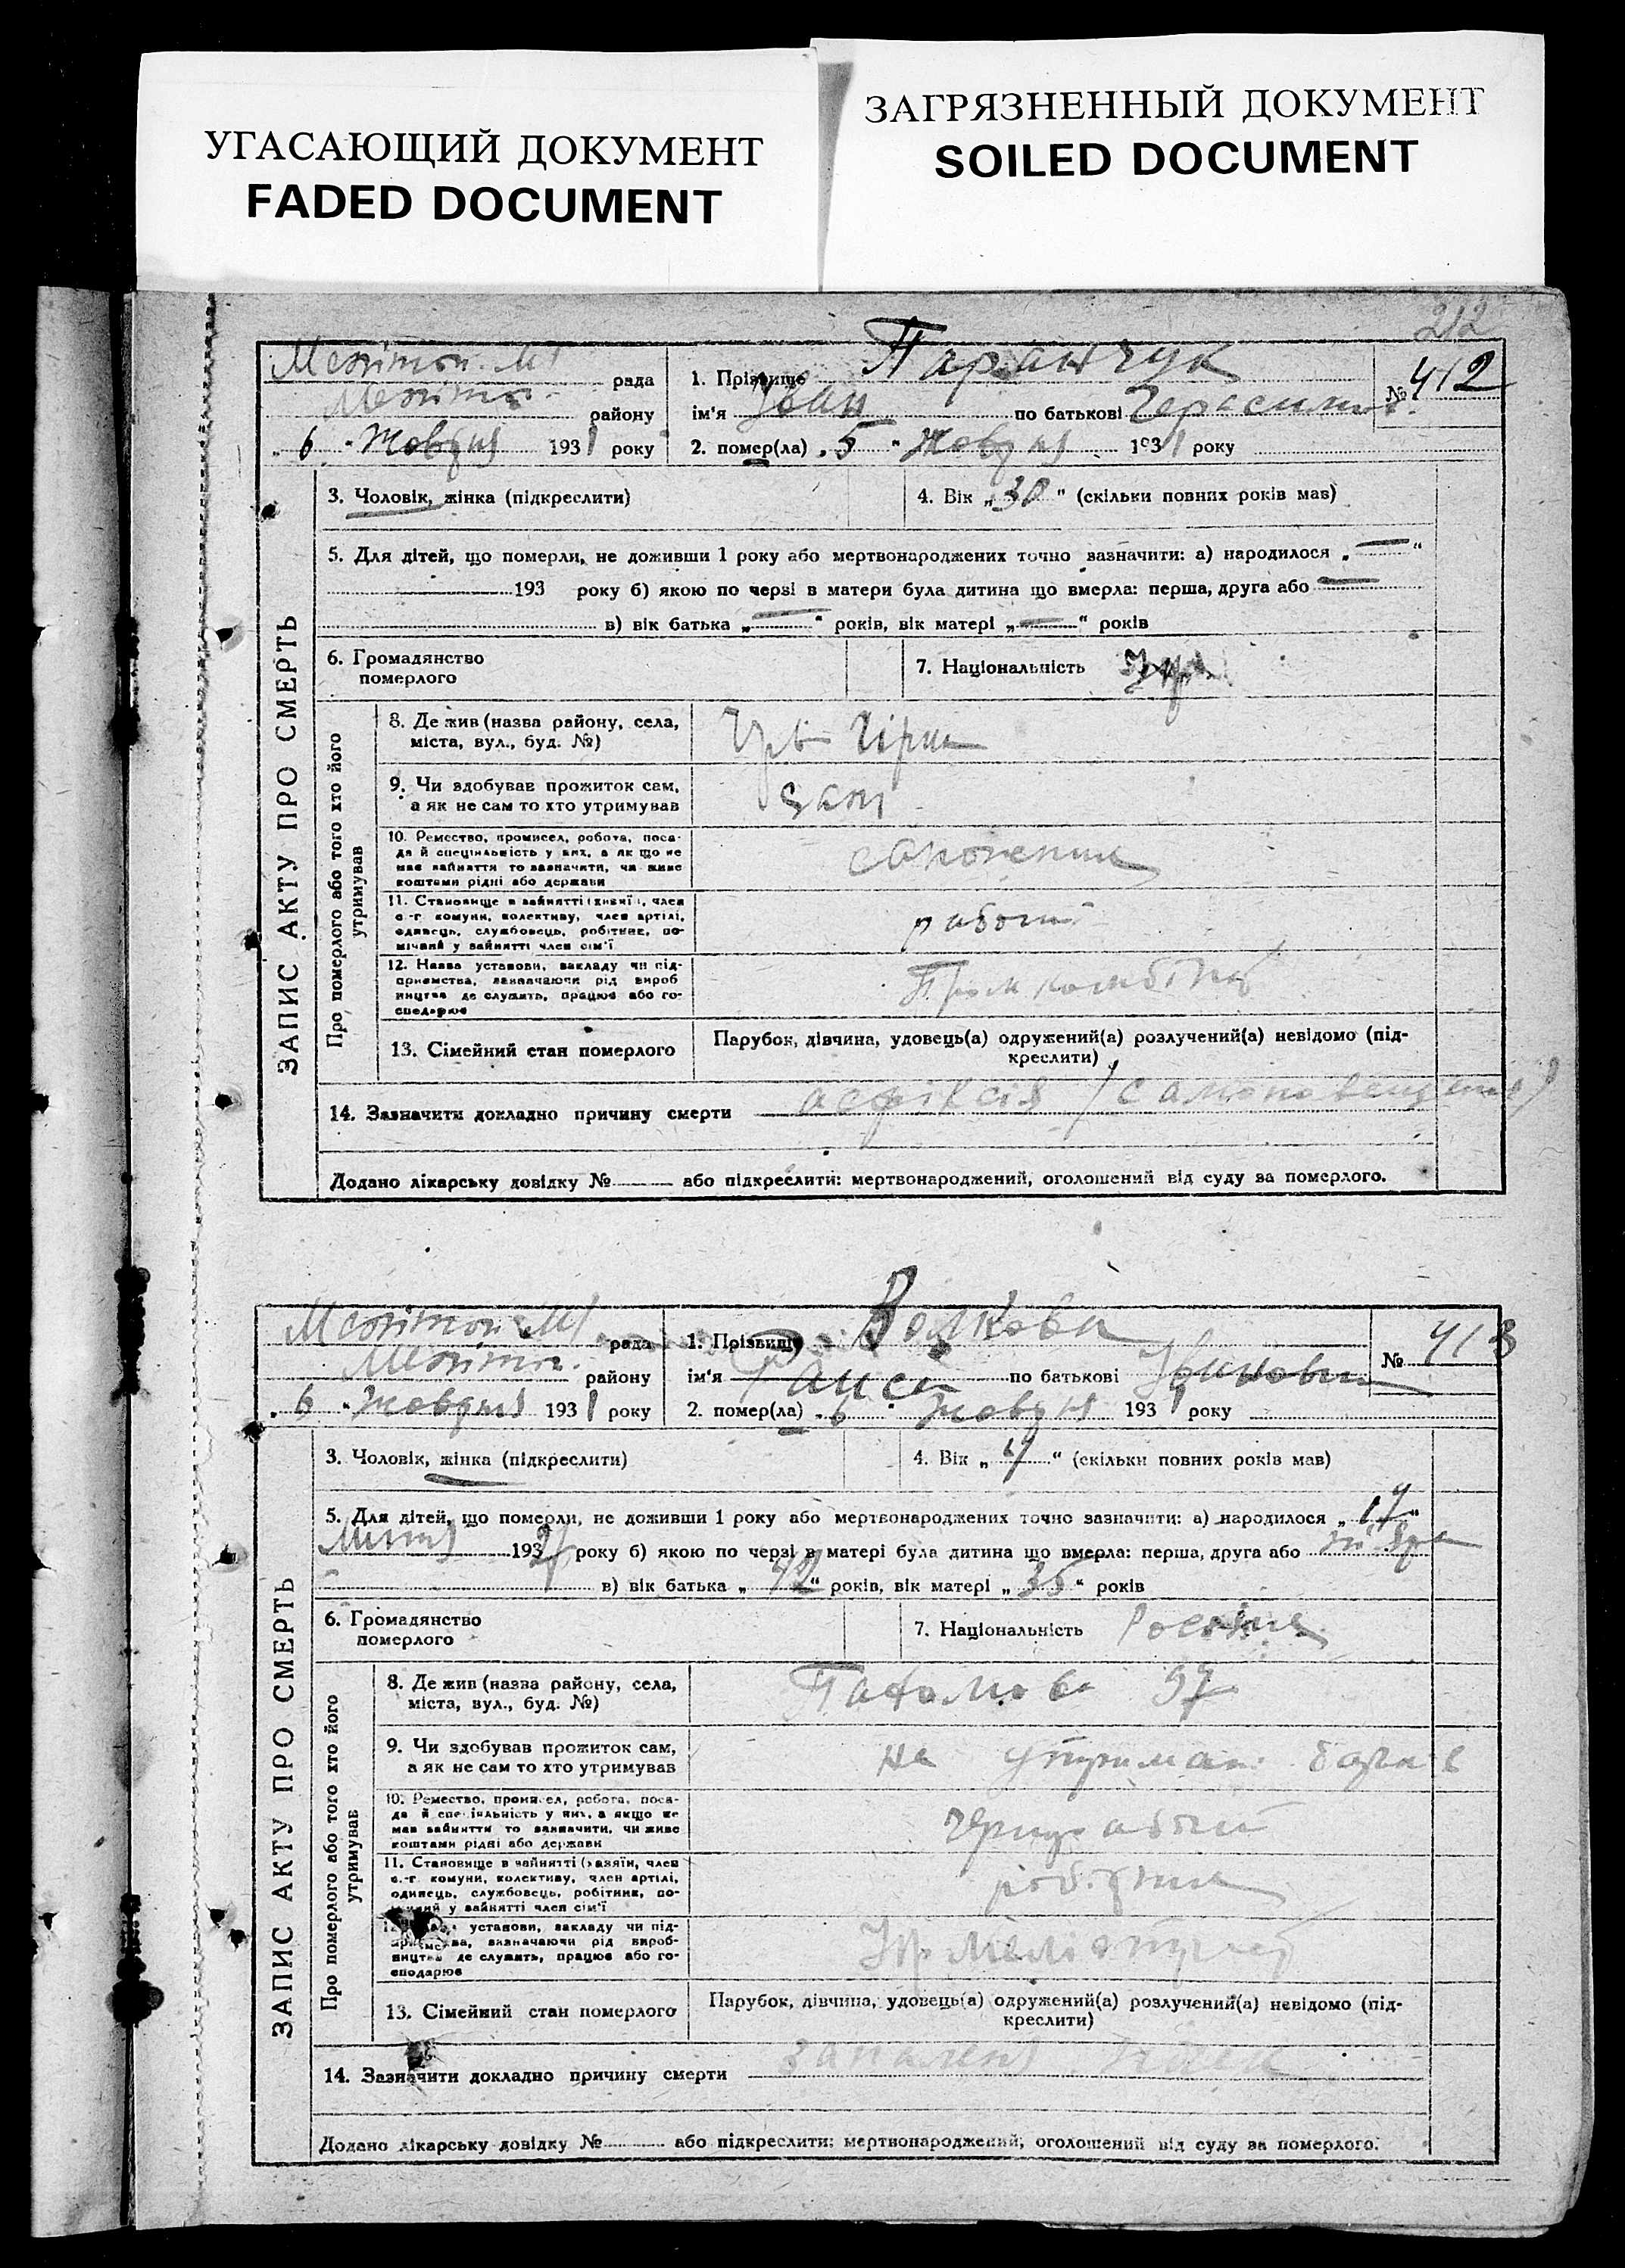 УГАСАЮЩИЙ ДОКУМЕНТ
FADED DOCUMENT
ЗАГРЯЗНЕННЫЙ ДОКУМЕНТ
SOILED DOCUMENT
212
ЗАПИС АКТУ ПРО СМЕРТЬ
Мелітоп. М рада
Меліто. району
„ 6 " Жовтня 1931 року
1. Прізвище Паранчук
№ 412
ім'я Іван по батькові Герасимов.
2. помер(ла) „ 5 " Жовтня 1931 року
3. Чоловік, жінка (підкреслити)
4. Вік „ 30 " (скільки повних років мав)
5. Для дітей, що померли, не доживши 1 року або мертвонароджених точно зазначити: а) народилося „ — "
193 року б) якою по черзі в матери була дитина що вмерла: перша, друга або —
в) вік батька „ — " років, вік матері „ — " років
6. Громадянство
померлого
7. Національність Укр
Про померлого або того хто його
утримував
8. Де жив (назва району, села,
міста, вул., буд. №)
9. Чи здобував прожиток сам,
а як не сам то хто утримував
сам
10. Ремество, промисел, робота, поса-
да й спеціяльність у них, а як що не
мав зайняття то зазначити, чи живе
коштами рідні або держави
11. Становище в зайнятті (хазяїн, член
с.-г. комуни, колективу, член артілі,
одинець, службовець, робітник, по-
мічний у зайнятті член сім'ї
12. Назва установи, закладу чи під-
приємства, зазначаючи рід вироб
ництва де служить, працює або го-
сподарює
Промкомбінат
13. Сімейний стан померлого
Парубок, дівчина, удовець(а) одружений(а) розлучений(а) невідомо (під-
креслити)
14. Зазначити докладно причину смерти асфіксія (самоповешення)
Додано лікарську довідку № або підкреслити: мертвонароджений, оголошений від суду за померлого.
ЗАПИС АКТУ ПРО СМЕРТЬ
Мелітоп. М рада
Меліто. району
„ 6 " Жовтня 1931 року
1. Прізвище Волкова
№ 413
ім'я Раиса по батькові Ивановн
2. помер(ла) „ 6 " Жовтня 1931 року
3. Чоловік, жінка (підкреслити)
4. Вік „ 4 " (скільки повних років мав)
5. Для дітей, що померли, не доживши 1 року або мертвонароджених точно зазначити: а) народилося „ 14 "
Липня 1927 року б) якою по черзі в матері була дитина що вмерла: перша, друга або
в) вік батька „ 42 " років, вік матері „ 35 " років
6. Громадянство
померлого
7. Національність Росіянка
Про померлого або того хто його
утримував
8. Де жив (назва району, села,
міста, вул., буд. №)
97
9. Чи здобував прожиток сам,
а як не сам то хто утримував
на утриман. батьків
10. Ремество, промисел, робота, поса-
да й спеціяльність у них, а якщо не
мав зайняття то зазначити, чи живе
коштами рідні або держави
чернороб
11. Становище в зайнятті (хазяїн, член
с.-г. комуни, колективу, член артілі,
одинець, службовець, робітник, по-
мічний у зайнятті член сім'ї
робітник
12. Назва установи, закладу чи під-
приємства, зазначаючи рід вироб-
ництва де служить, працює або го-
сподарює
13. Сімейний стан померлого
Парубок, дівчина, удовець(а) одружений(а) розлучений(а) невідомо (під-
креслити)
14. Зазначити докладно причину смерти запалення
Додано лікарську довідку № або підкреслити: мертвонароджений, оголошений від суду за померлого.